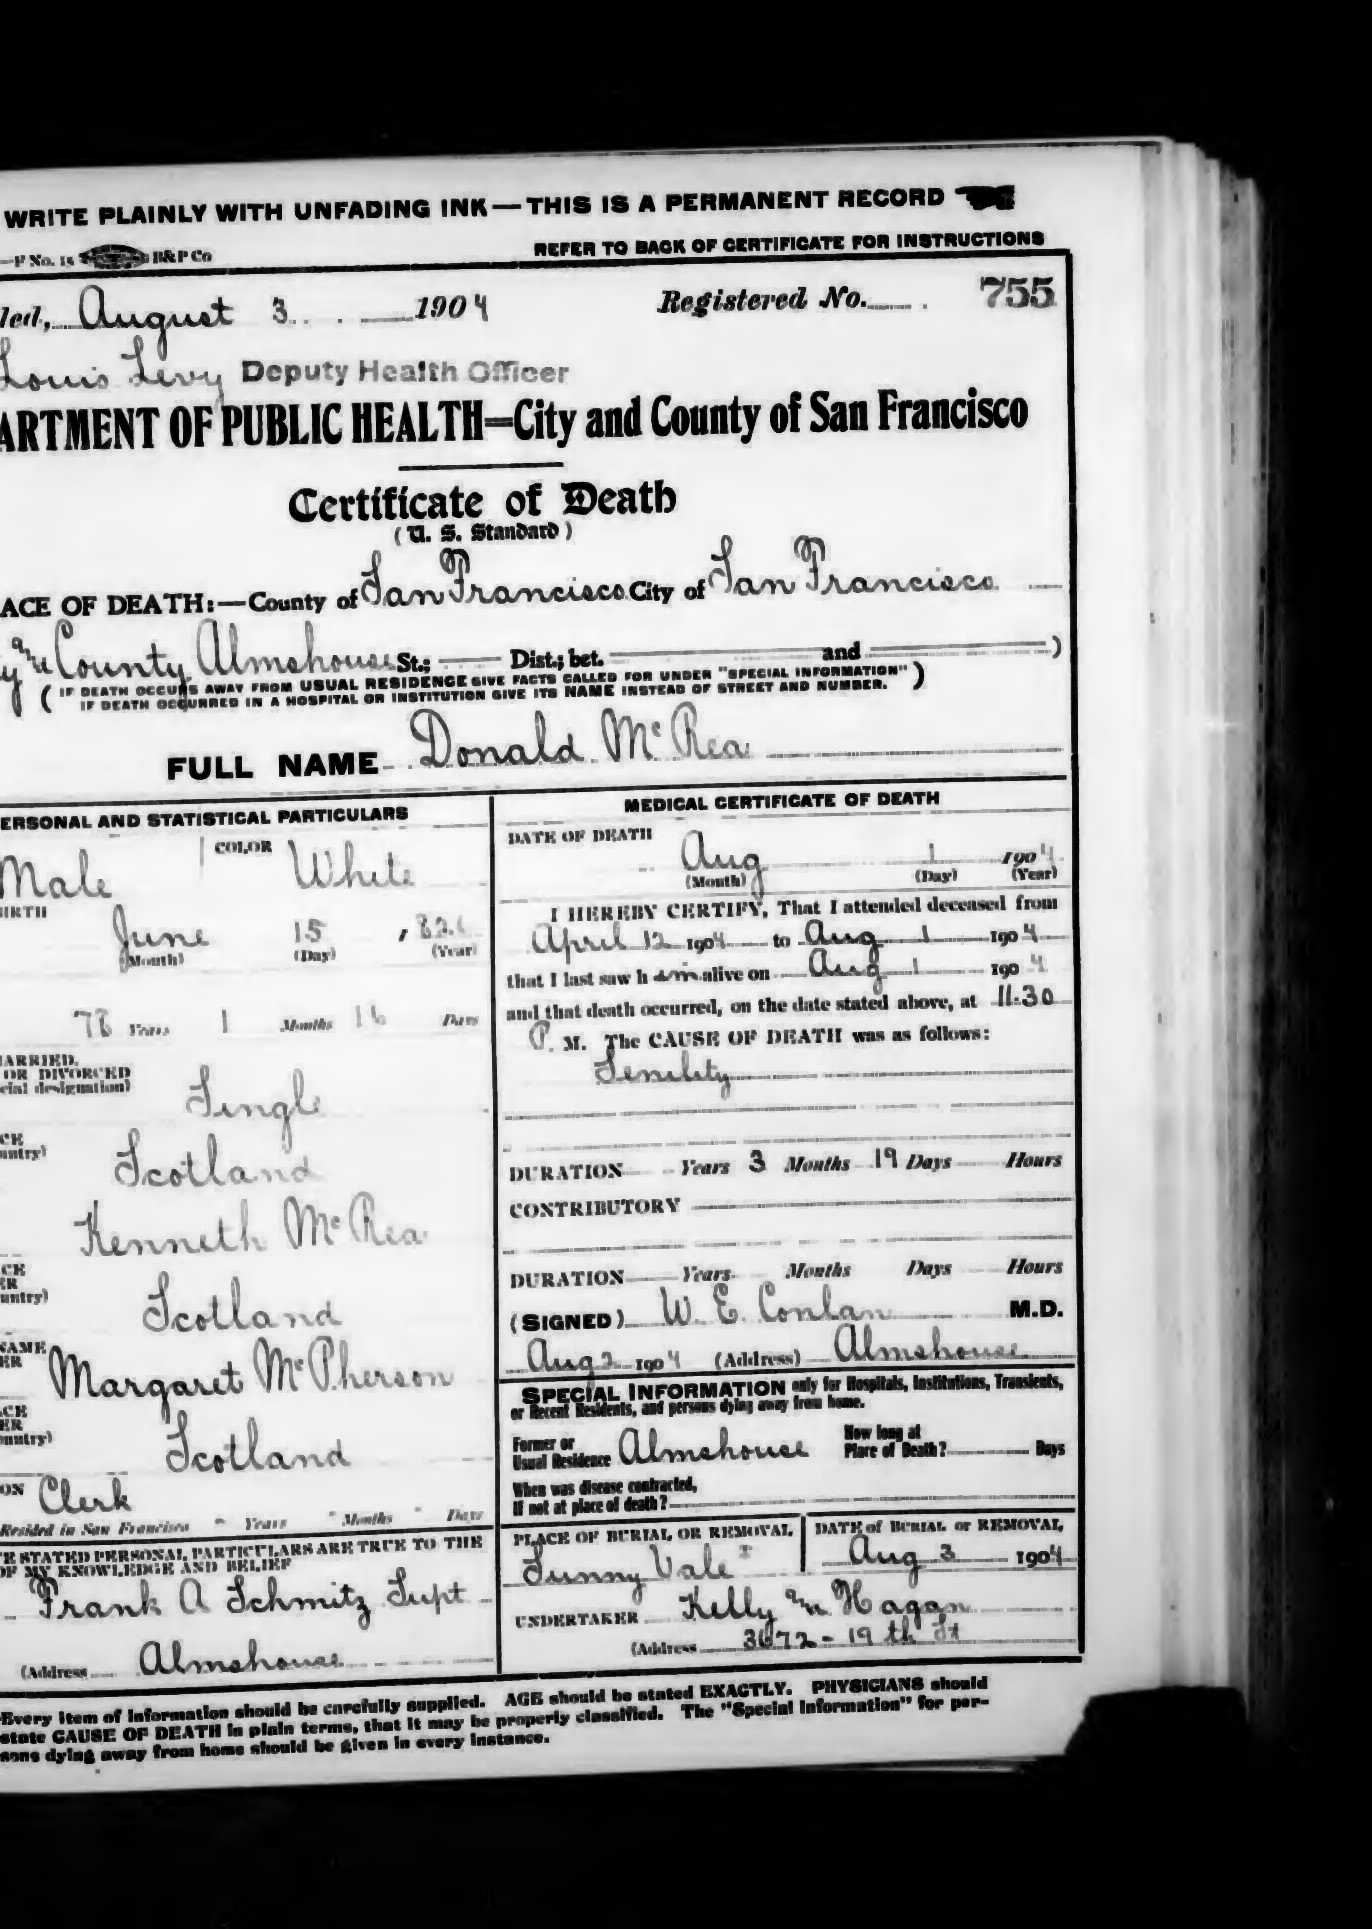 WRITE PLAINLY WITH UNFADING INK—THIS IS A PERMANENT RECORD
—F No. 15 B&P Co REFER TO BACK OF CERTIFICATE FOR INSTRUCTIONS
led, August 3 1904 Registered No. 755
Louis Levy Deputy Health Officer
ARTMENT OF PUBLIC HEALTH=City and County of San Francisco
Certificate of Death
(U. S. Standard)
ACE OF DEATH:—County of San Francisco City of San Francisco
County Almshouse St.; Dist.; bet. and )
( IF DEATH OCCURS AWAY FROM USUAL RESIDENCE GIVE FACTS CALLED FOR UNDER "SPECIAL INFORMATION" )
IF DEATH OCCURRED IN A HOSPITAL OR INSTITUTION GIVE ITS NAME INSTEAD OF STREET AND NUMBER.
FULL NAME Donald Mc Rea
ERSONAL AND STATISTICAL PARTICULARS
Male COLOR White
IRTH
June 15
(Month) (Day) (Year)
78 Years 1 Months 16 Days
ARRIED,
OR DIVORCED
cial designation)
Single
CE
untry)
Scotland
Kenneth Mc Rea
CE
ER
untry)
Scotland
NAME
ER
Margaret Mc Pherson
ACE
ER
ountry)
Scotland
ON Clerk
Resided in San Francisco " Years " Months " Days
E STATED PERSONAL PARTICULARS ARE TRUE TO THE
OF MY KNOWLEDGE AND BELIEF
Frank A Schmitz Supt
(Address Almshouse
MEDICAL CERTIFICATE OF DEATH
DATE OF DEATH
Aug 1 1904
(Month) (Day) (Year)
I HEREBY CERTIFY, That I attended deceased from
April 12 1904 to Aug 1 1904
that I last saw h im alive on Aug 1 1904
and that death occurred, on the date stated above, at 11.30
P. M. The CAUSE OF DEATH was as follows:
Senility
DURATION Years 3 Months 19 Days Hours
CONTRIBUTORY
DURATION Years Months Days Hours
(SIGNED) W. E. Conlan M.D.
Aug 2 1904 (Address) Almshouse
SPECIAL INFORMATION only for Hospitals, Institutions, Transients,
or Recent Residents, and persons dying away from home.
Former or
Usual Residence Almshouse How long at
Place of Death? Days
When was disease contracted,
If not at place of death?
PLACE OF BURIAL OR REMOVAL
Sunny Vale
DATE of BURIAL or REMOVAL
Aug 3 1904
UNDERTAKER Kelly and Hagan
(Address 3672 - 19th St
Every item of information should be carefully supplied. AGE should be stated EXACTLY. PHYSICIANS should
state CAUSE OF DEATH in plain terms, that it may be properly classified. The "Special Information" for per-
sons dying away from home should be given in every instance.